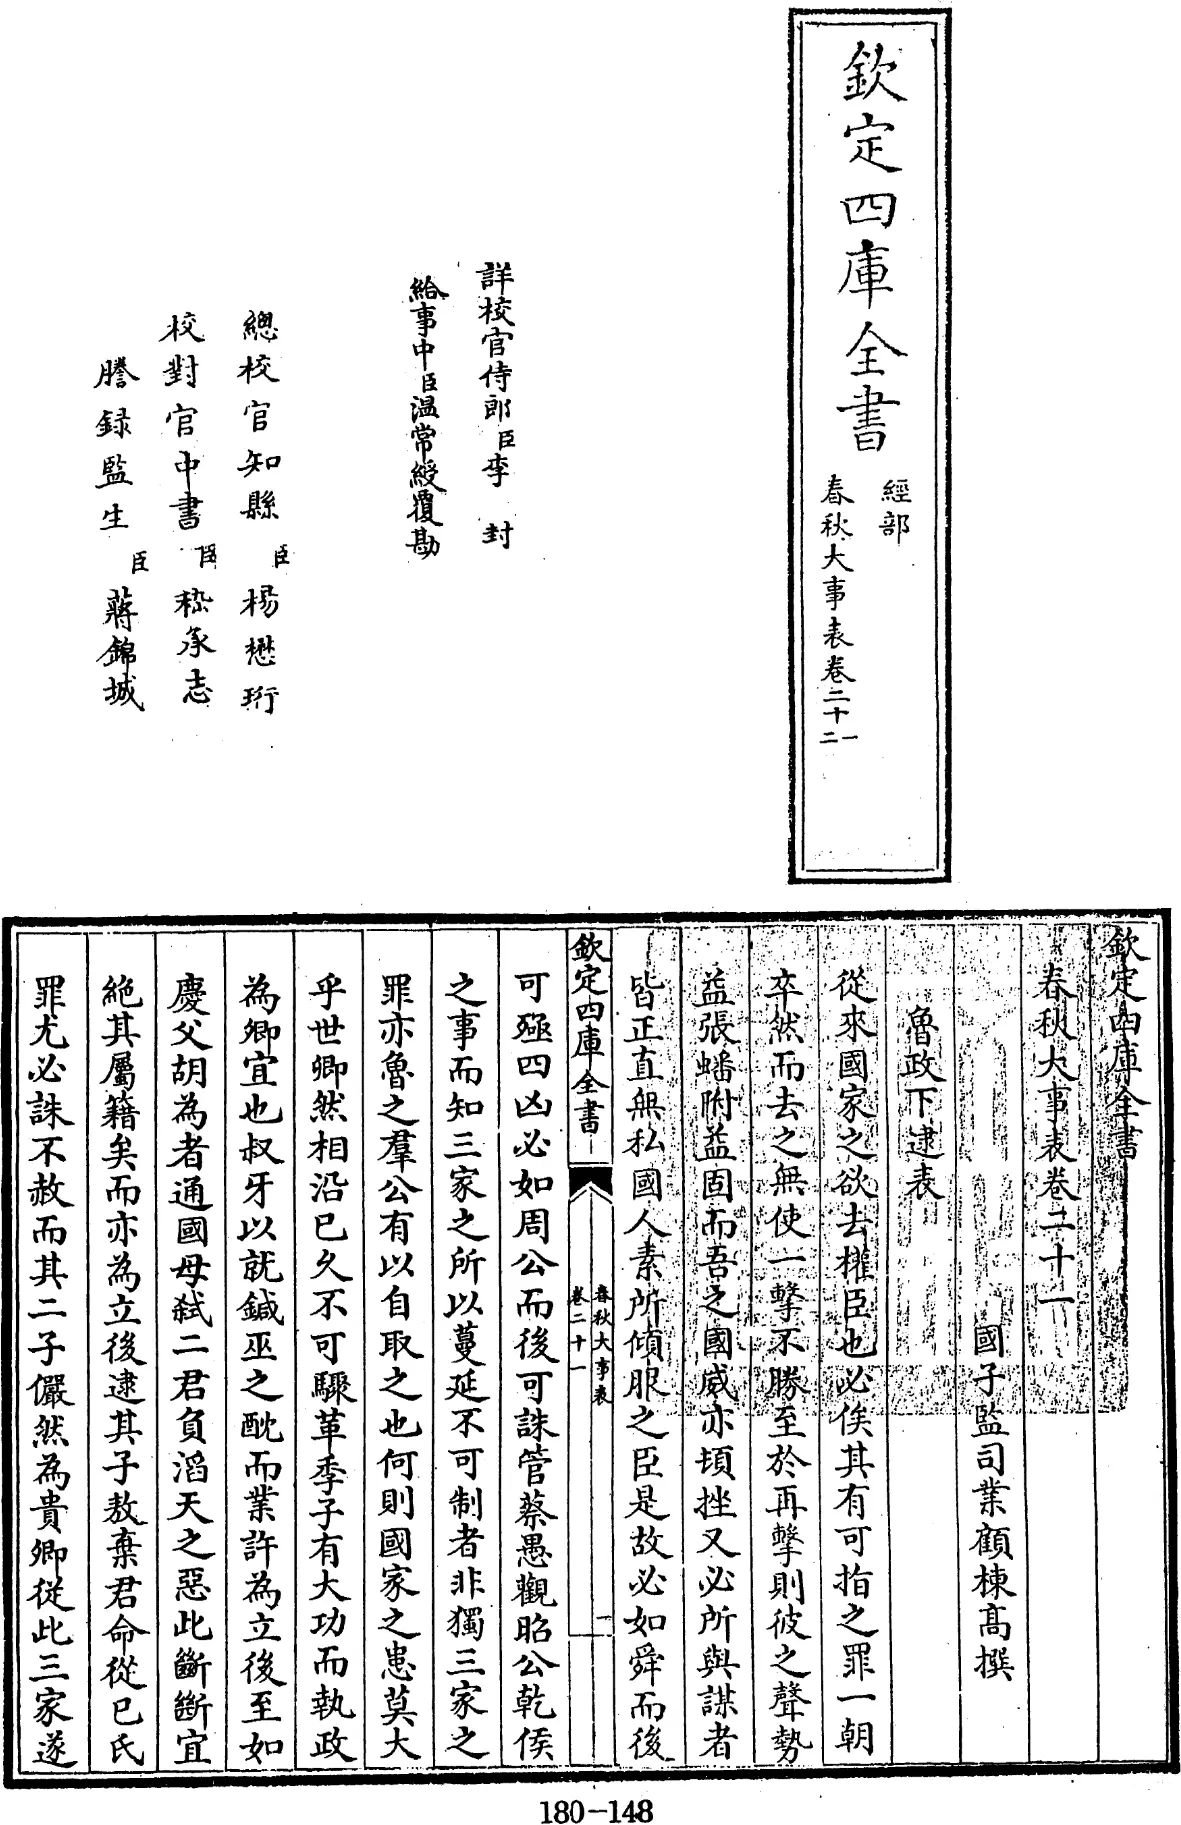 欽定四庫全書
經部
春秋大事表卷二十一
二
詳校官侍郎臣李封
給事中臣温常綬覆勘
總校官知縣臣楊懋珩
校對官中書臣嵇承志
謄録監生臣蔣錦城
欽定四庫全書
春秋大事表卷二十一
國子監司業顧棟高撰
魯政下逮表
從來國家之欲去權臣也必俟其有可指之罪一朝
卒然而去之無使一擊不勝至於再擊則彼之聲勢
益張蟠附益固而吾之國威亦頓挫又必所與謀者
皆正直無私國人素所傾服之臣是故必如舜而後
欽定四庫全書
春秋大事表
卷二十一
一
可殛四凶必如周公而後可誅管蔡愚觀昭公乾侯
之事而知三家之所以蔓延不可制者非獨三家之
罪亦魯之羣公有以自取之也何則國家之患莫大
乎世卿然相沿已久不可驟革季子有大功而執政
為卿宜也叔牙以就鍼巫之酖而業許為立後至如
慶父胡為者通國母弑二君負滔天之惡此斷斷宜
絶其屬籍矣而亦為立後逮其子敖棄君命從已氏
罪尤必誅不赦而其二子儼然為貴卿從此三家遂
180-148